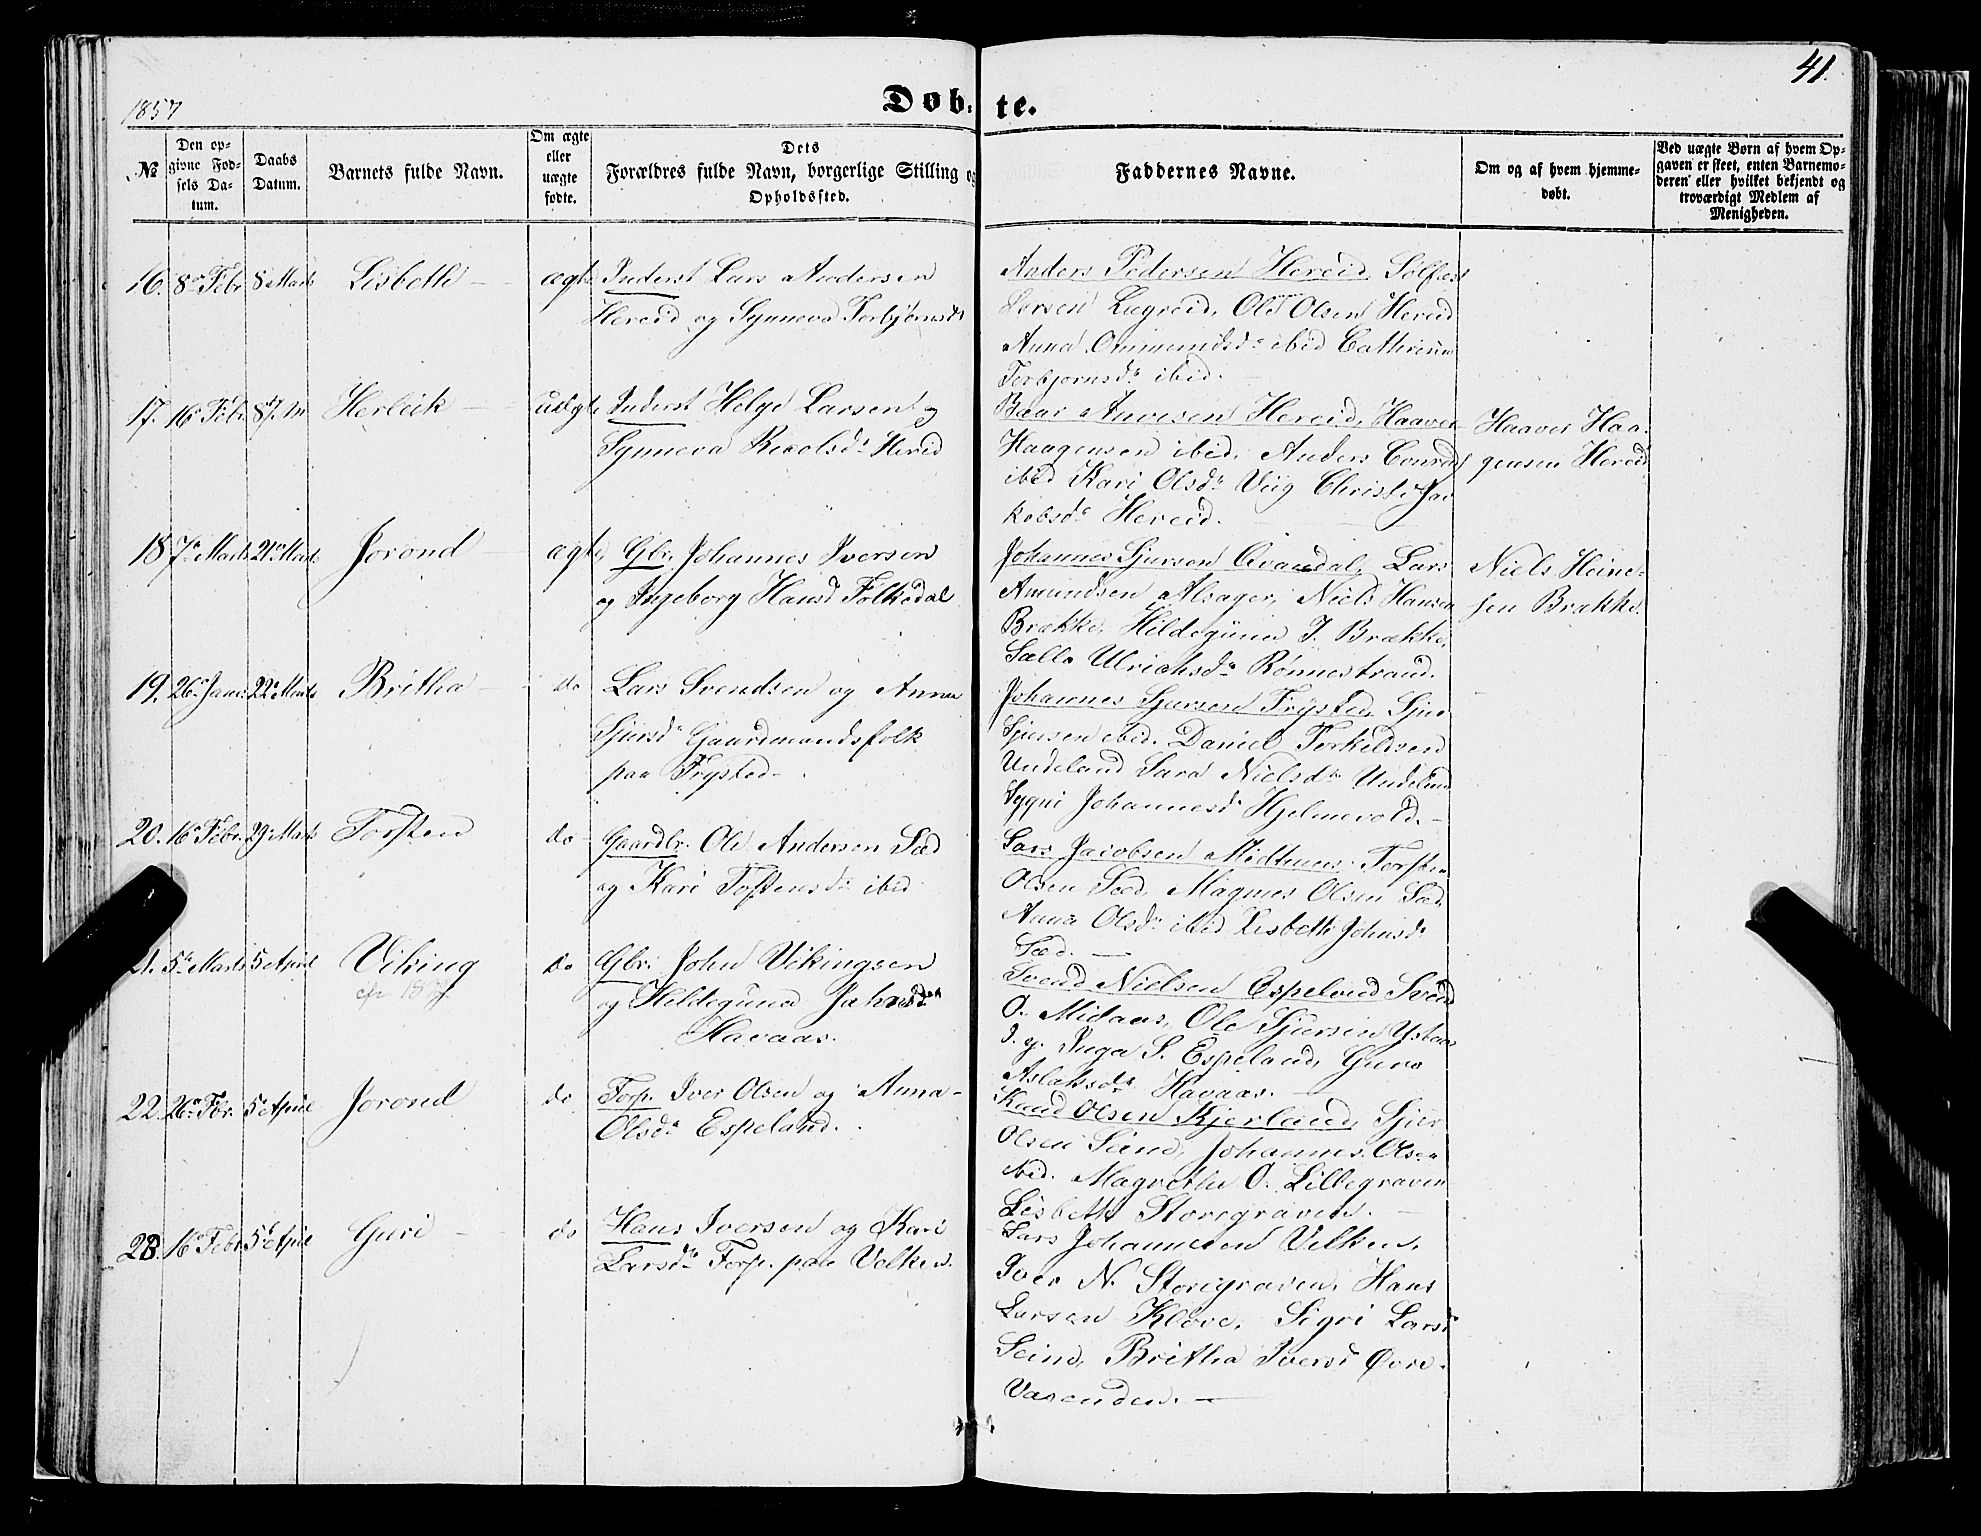 41.
1857
Døb-
te.
No
Den op-
givne Fød-
sels Da-
tum.
Daabs
Datum.
Barnets fulde Navn.
Om ægte
eller
uægte
fødte.
Dets
Forældres fulde Navn, borgerlige Stilling og
Opholdssted.
Faddernes Navne.
Om og af hvem hjemme-
døbt.
Ved uægte Børn af hvem Op-
gaven er skeet, enten Barnemo-
deren eller hvilket bekjendt og
troværdigt Medlem af
Menigheden.
16. 8de Febr 8 Marts Lisbeth ægte Inderst Lars Andersen
Hereid og Synneva Torbjørnsdr
Anders Pedersen Hereid,
Lægreid, Ole Olsen Hereid
Anna Ommundsdr ibid Cathrina
Torbjørnsdr ibid.
17. 16 Febr 8 M Herleik uægte Inderst Helge Larsen og
Synneva Hereid
Hereid, Haaver
Haagensen ibid, Anders Conrad
ibid Kari Olsdr Viig Christi Ja-
kobsdr Hereid.
Haaver Haa-
gensen Hereid
18 7de Marts 21 Marts Jorond ægte Gbr. Johannes Iversen
og Ingeborg Hansd Folkedal
Johannes Sjursen Qvandal, Lars
Amundsen Alsager, Niels Hansen
Brække, Hildegüna J. Brække,
Salla Ulrichsdr Rønnestrand.
Niels Heine-
sen Brække.
19. 26 Janr 22 Marts Britha do Lars Svendsen og Anna
Sjursdr Gaardmandsfolk
paa Trysted
Johannes Sjursen Trysted, Sjur
Sjursen ibid. Daniel Torkildsen
Undeland Sara Nielsdr Undeland
Johannesdr Hjelmevold.
20. 16 Febr. 29 Marts Torsten do Gaardbr. Ole Andersen Sæd
og Kari Torstensdr ibid
Lars Jacobsen Midtnes, Torsten
Olsen Sæd, Magnus Olsen Sæd,
Anna Olsdr ibid Lisbeth Johnsdr
Sæd.
21. 5te Marts 5 April Viking do Gbr. John Vikingsen
og Hildeguna
Havaas.
Svend Nielsen Espeland Svend
O. Midaas, Ole Sjursen
Inga S. Espeland, Guro
Aslaksdr Havaas.
22. 26 Fbr. 5 April Jorond do Torp. Iver Olsen og Anna
Olsdr Espeland.
Knud Olsen Kjerland, Sjur
Olsen Seim, Johannes Olsen
ibid. Magrethe O. Lillegraven
Lisbeth Storegraven.
23. 16 Febr 5te April Guri do Hans Iversen og Kari
Larsdr Torp. paa Velken.
Lars Johannesen Velken,
Iver N. Storegraven, Hans
Larsen Kløve, Sigri Larsd
Seim, Britha Iversd Øvre-
Vasenden.